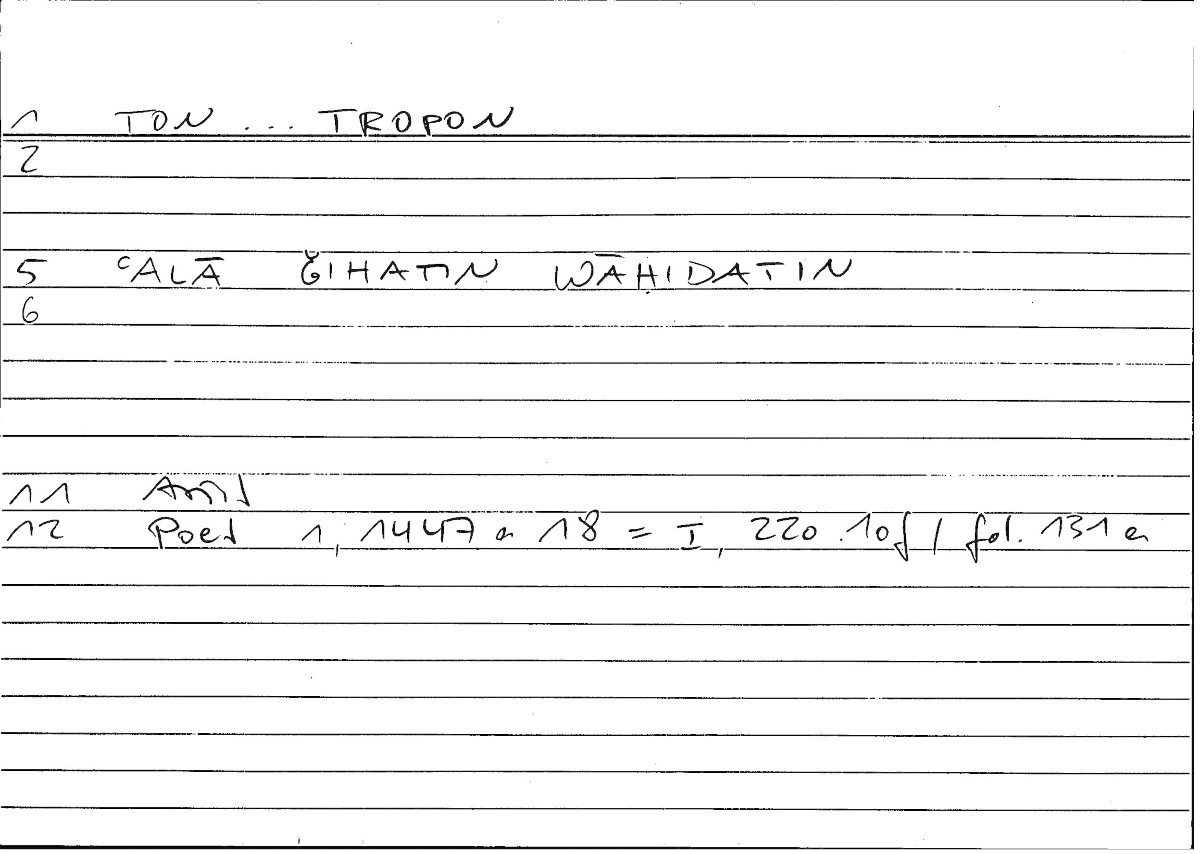 1 TON ... TROPON
2
5 ʿALĀ ǦIHATIN WĀḤIDATIN
6
11 Arist
12 Poet 1, 1447 a 18 = I, 220.10f / fol. 131 a